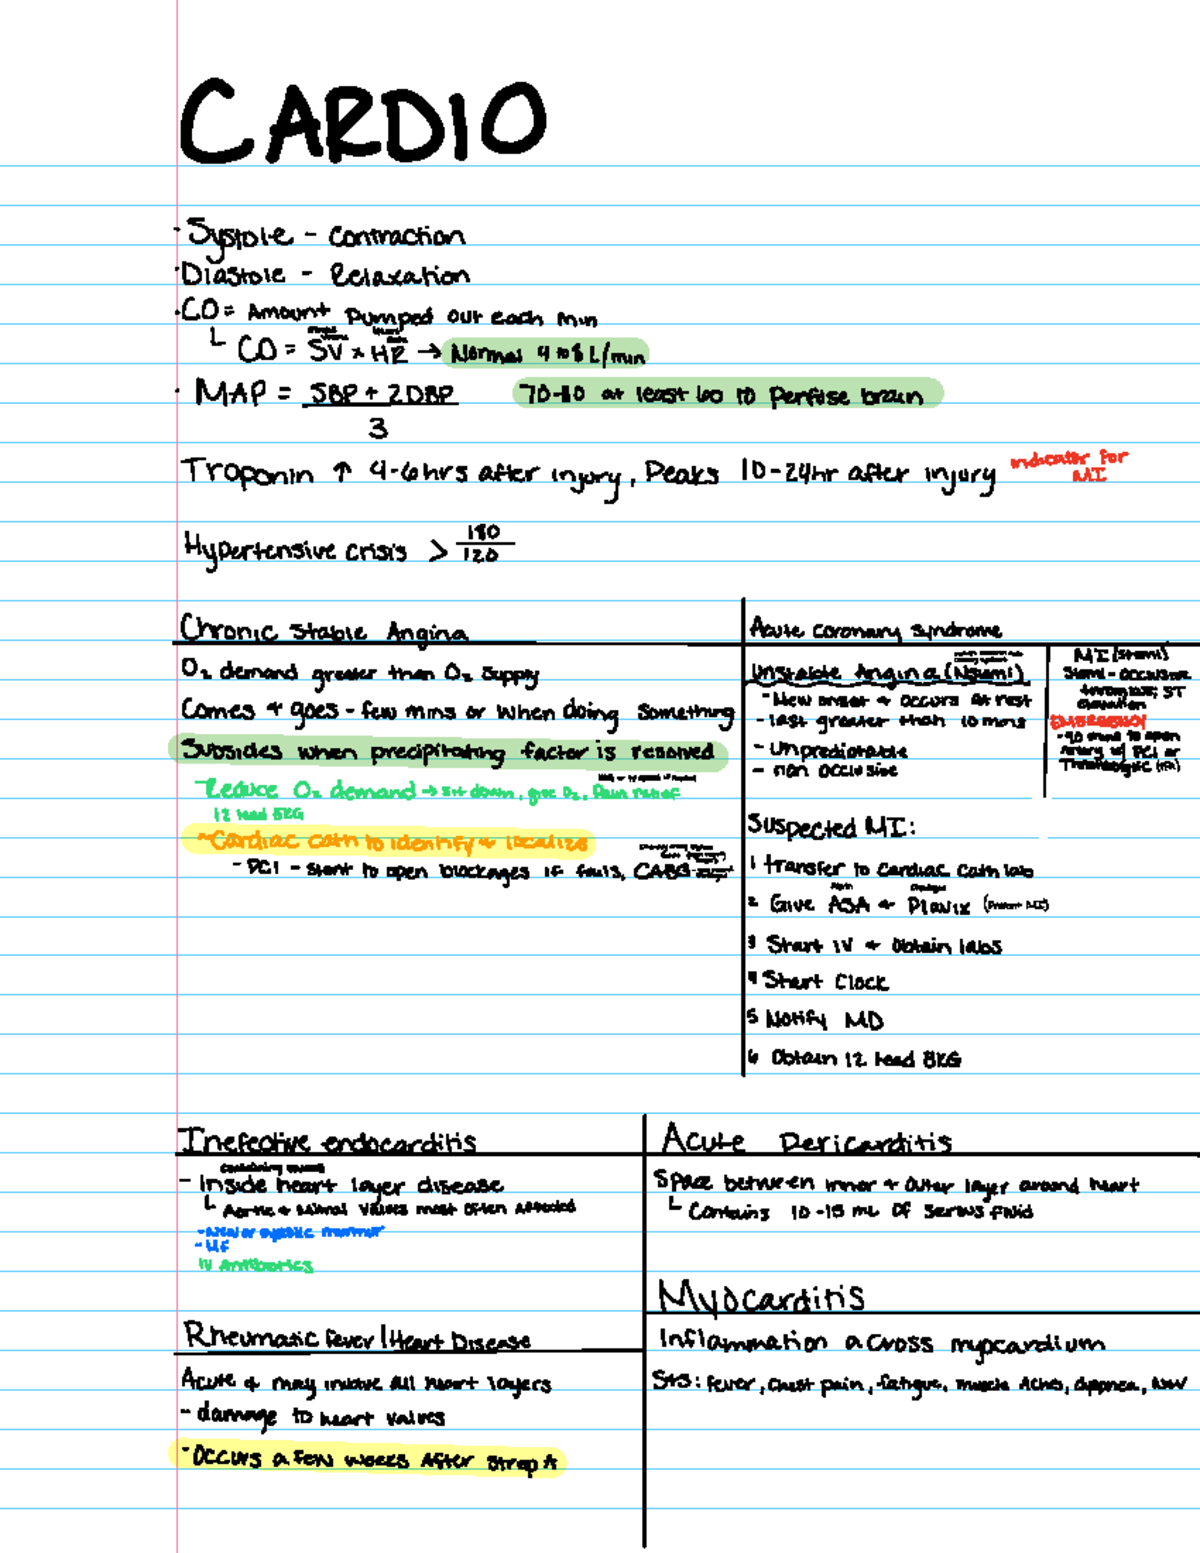 CARDIO
· Systole - Contraction
· Diastole - Relaxation
· CO = Amount pumped out each min
CO = SV x HR → Normal 4 to 8 L/min
· MAP = SBP + 2DBP
3
70-80 at least 60 to perfuse brain
Troponin ↑ 4-6hrs after injury, Peaks 10-24hr after injury
indicator for
MI
Hypertensive crisis > 180
120
Chronic Stable Angina
O₂ demand greater than O₂ supply
Comes + goes - few mins or when doing something
Subsides when precipitating factor is resolved
- Reduce O₂ demand → sit down, give O₂, Pain relief
12 lead EKG
- Cardiac cath to identify + localize
- PCI - Stent to open blockages if fails, CABG
Acute coronary syndrome
Unstable Angina (Nstemi)
- New onset + occurs at rest
- last greater than 10 mins
- Unpredictable
- non occlusive
MI (Stemi)
Stemi - occlusive
thrombus; ST
elevation
EMERGENCY
- 90 mins to open
Artery w/ PCI or
Thrombolytic
Suspected MI:
1 transfer to cardiac cath lab
2 Give ASA + Plavix
3 Start IV + Obtain labs
4 Start Clock
5 Notify MD
6 Obtain 12 lead EKG
Inefective endocarditis
- Inside heart layer disease
Aortic + Mitral valves most often affected
- New or systolic murmur
- HF
IV Antibiotics
Acute Pericarditis
Space between inner + outer layer around heart
Contains 10-15 mL of serous fluid
Myocarditis
Inflammation across myocardium
S+S: fever, chest pain, fatigue, muscle Aches, dyspnea
Rheumatic fever/Heart Disease
Acute & may involve all heart layers
- damage to heart valves
- Occurs a few weeks After Strep A